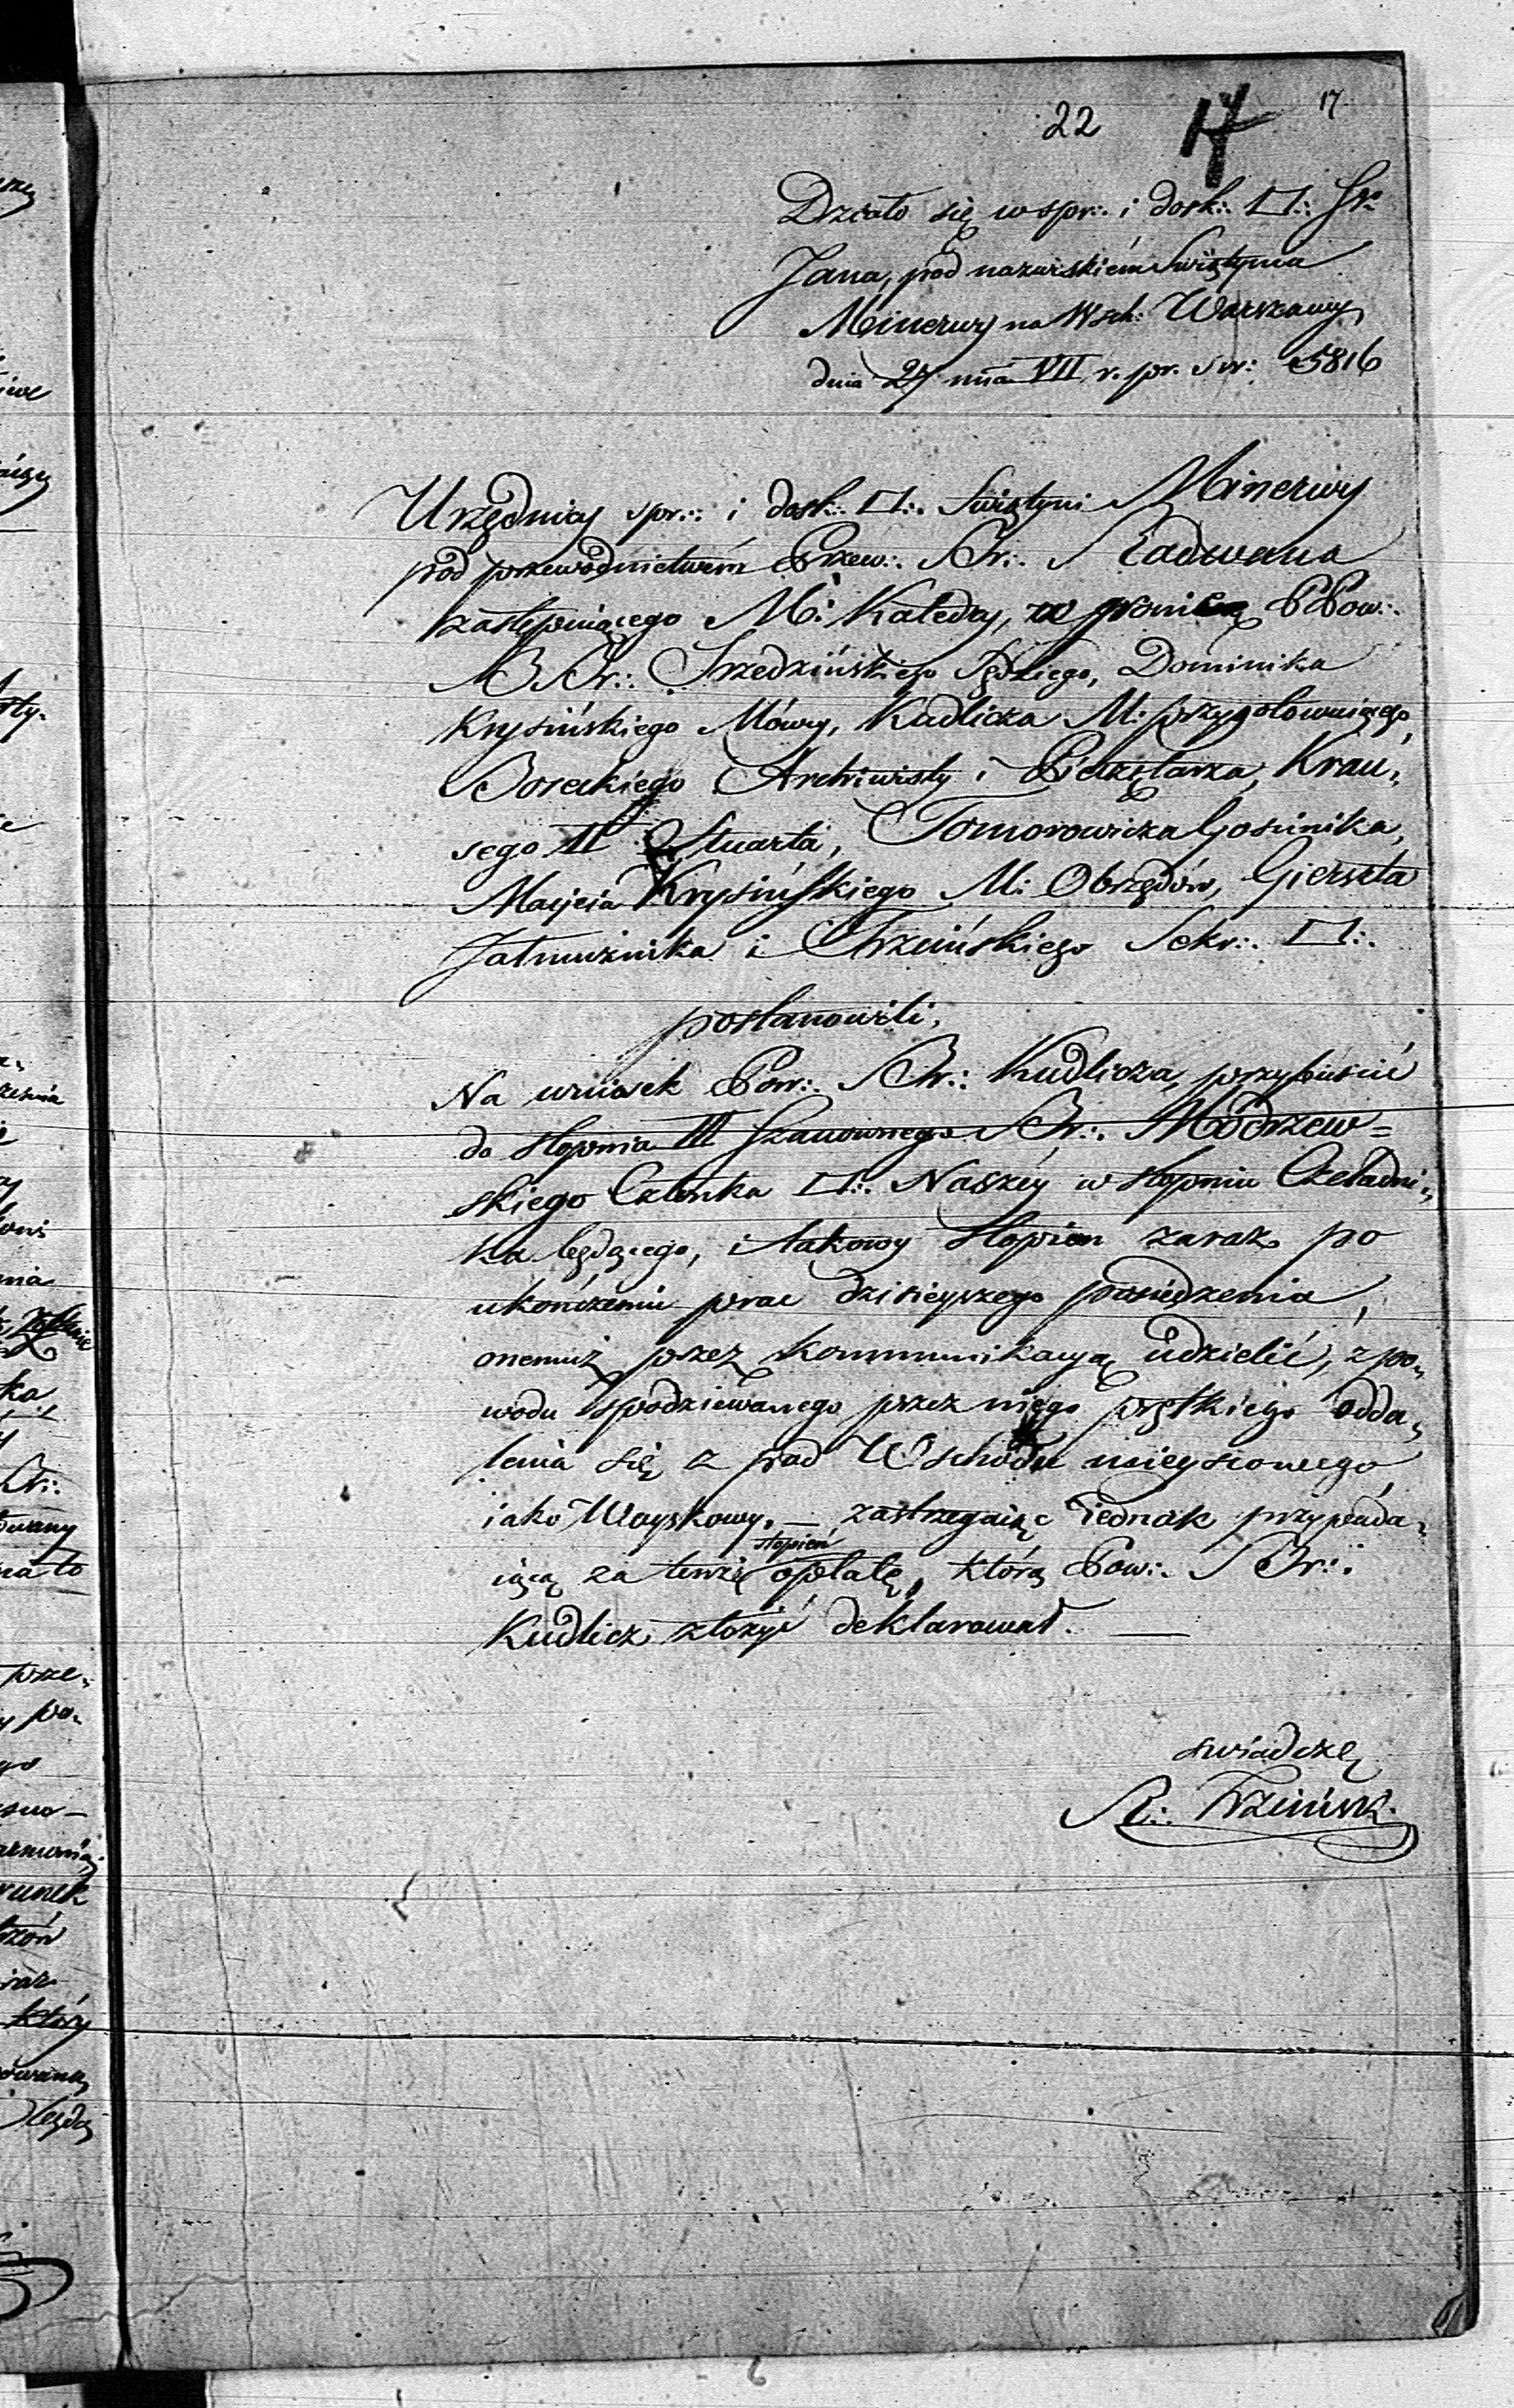 22 17 17
Działo się w spr:. i dosk:. □:. Sw.
Jana, pod nazwiskiem Swiątynia
Minerwy na Wsch: Warszawy
dnia 27 mca VII r. pr. Sw: 5816
Urzędnicy spr:. i dosk:. □:. Swiątyni Minerwy
pod przewodnictwem Przew:. Br:. Radwana
zastępuiącego M: Katedry, w gronie PPow:.
BBr:. Srzedzińskiego Sędziego, Dominika
Krysińskiego Mówcy, Kudlicza M: przygotowuiącego,
Boreckiego Archiwisty i Pieczętarza, Krau-
sego II Stuarta, Tomorowicza Gościnnika,
Macieia Krysińskiego M: Obrzędów, Gierszta
Jałmużnika i Trzcińskiego Sekr:. □:.
postanowili,
Na wniosek Pow:. Br:. Kudlicza, przypuścić
do stopnia III Szanownego Br:. Modrzew=
skiego Członka □:. Naszéy w stopniu Czeladni-
ka będącego, i takowy stopien zaraz po
ukończeniu prac dzisieyszego posiedzenia,
onemuż przez kommunikacyą udzielić, z po-
wodu spodziewanego przez niego prętkiego odda-
lenia się z pod Wschodu mieyscowego
iako Woyskowy. — zastrzegaiąc iednak przypada-
iącą za tenże stopień opłatę, którą Pow:. Br:.
Kudlicz złożyć deklarował. —
swiadczę
Br:. Trzciński